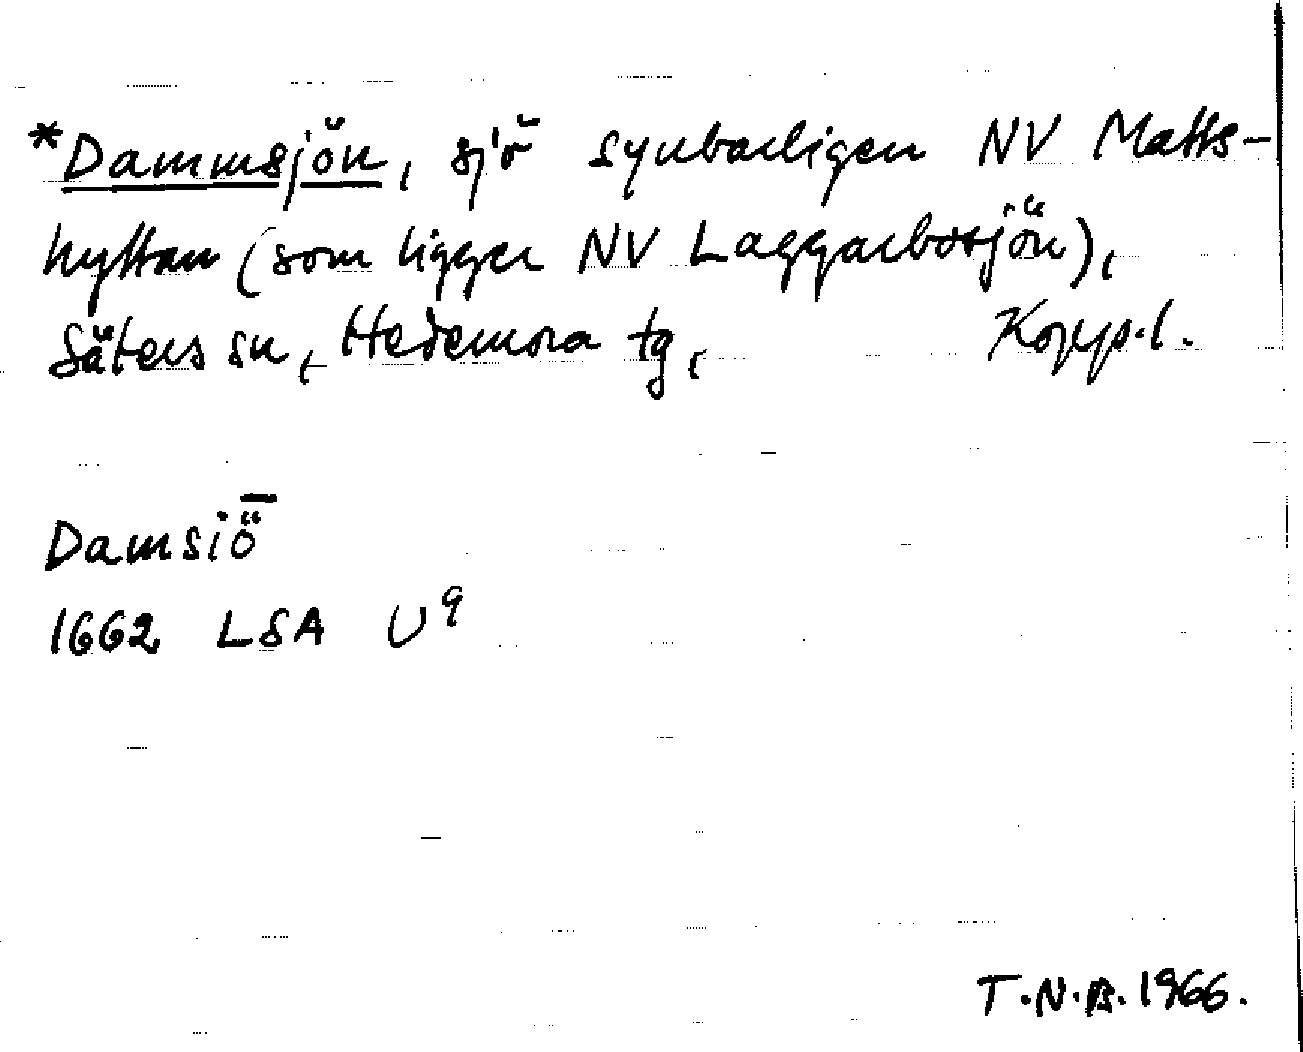 *Dammsjön, sjö synbarligen NV Matts-
hyttan (som ligger NV Laggarbosjön),
Säters sn, Hedemora tg, Kopp.l.
Damsiȫ
1662 LSA U9
T.N.B. 1966.